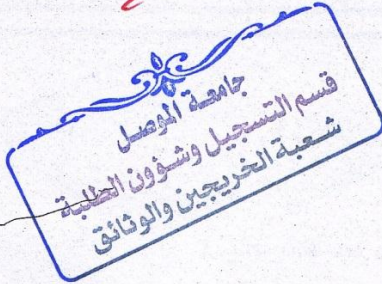 جامعة الموصل
قسم التسجيل وشؤون الطلبة
شعبة الخريجين والوثائق